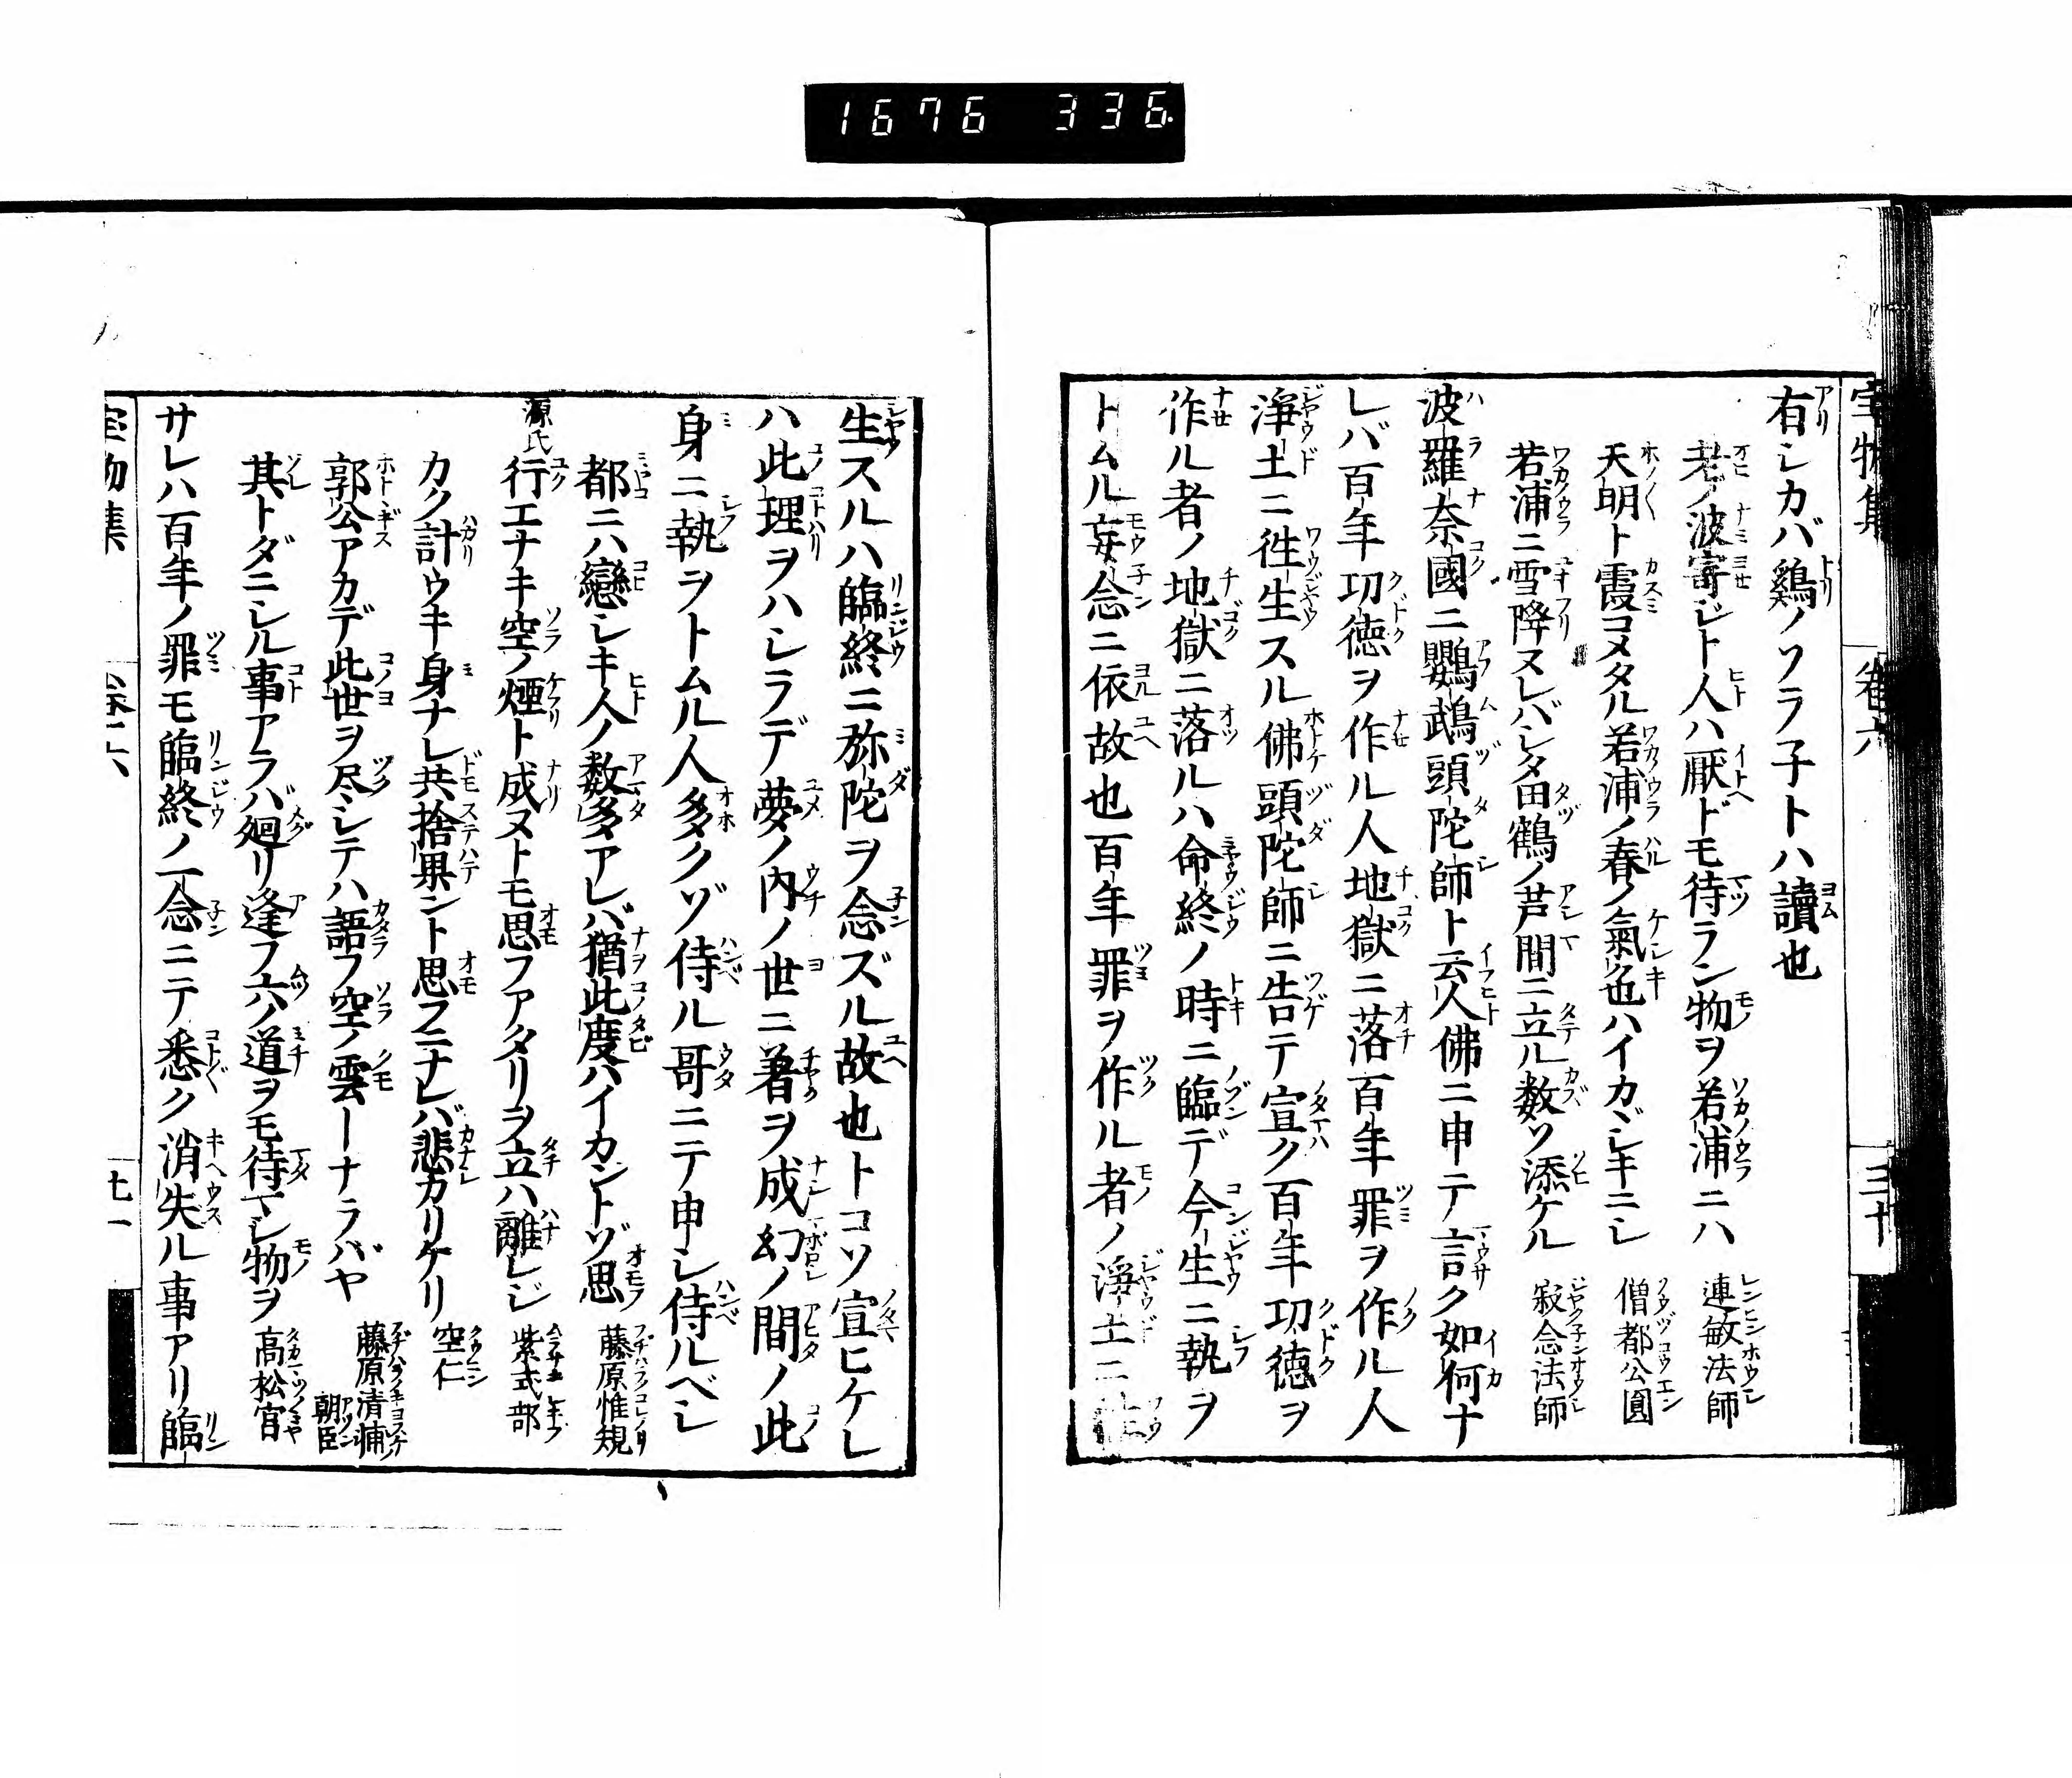 1676 336.
宝物集 巻六 三十
有シカバ鷄ノソラ子トハ讀也
老ノ波寄ジト人ハ厭ドモ待ラン物ヲ若浦ニハ 連敏法師
天明ト霞コメタル若浦ノ春ノ氣色ハイカヾシキニシ 僧都公圓
若浦ニ雪降ヌレバシタ田鶴ノ芦間ニ立ル数ソ添ケル 寂念法師
波羅奈國ニ鸚鵡頭陀師ト云人佛ニ申テ言ク如何ナ
レバ百年功徳ヲ作ル人地獄ニ落百年罪ヲ作ル人
淨土ニ徃生スル佛頭陀師ニ告テ宣ク百年功徳ヲ
作ル者ノ地獄ニ落ルハ命終ノ時ニ臨デ今生ニ執ヲ
トムル妄念ニ依故也百年罪ヲ作ル者ノ淨土ニ
生スルハ臨終ニ弥陀ヲ念ズル故也トコソ宣ヒケレ
ハ此理ヲハシラデ夢ノ内ノ世ニ著ヲ成幻ノ間ノ此
身ニ執ヲトムル人多クゾ侍ル哥ニテ申シ侍ルベシ
都ニハ戀シキ人ノ数多アレバ猶此度ハイカントゾ思 藤原惟規
源氏 行エナキ空ノ煙ト成ヌトモ思フアタリヲ立ハ離レジ 紫式部
カク計ウキ身ナレ共捨果ント思フニナレバ悲カリケリ 空仁
郭公アカデ此世ヲ尽シテハ語フ空ノ雲ーナラバヤ 藤原清輔朝臣
其トダニシル事アラバ廻リ逢フ六ノ道ヲモ待マシ物ヲ 高松宮
サレハ百年ノ罪モ臨終ノ一念ニテ悉ク消失ル事アリ臨